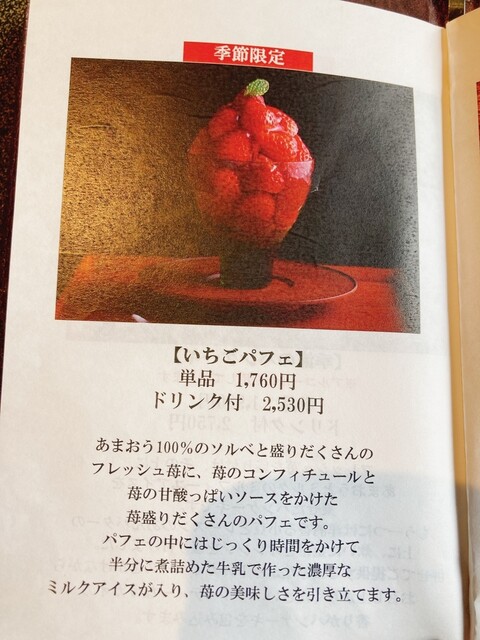 季節限定
【いちごパフェ】
単品 1,760円
ドリンク付 2,530円
あまおう100%のソルベと盛りだくさんの
フレッシュ苺に、苺のコンフィチュールと
苺の甘酸っぱいソースをかけた
苺盛りだくさんのパフェです。
パフェの中にはじっくり時間をかけて
半分に煮詰めた牛乳で作った濃厚な
ミルクアイスが入り、苺の美味しさを引き立てます。